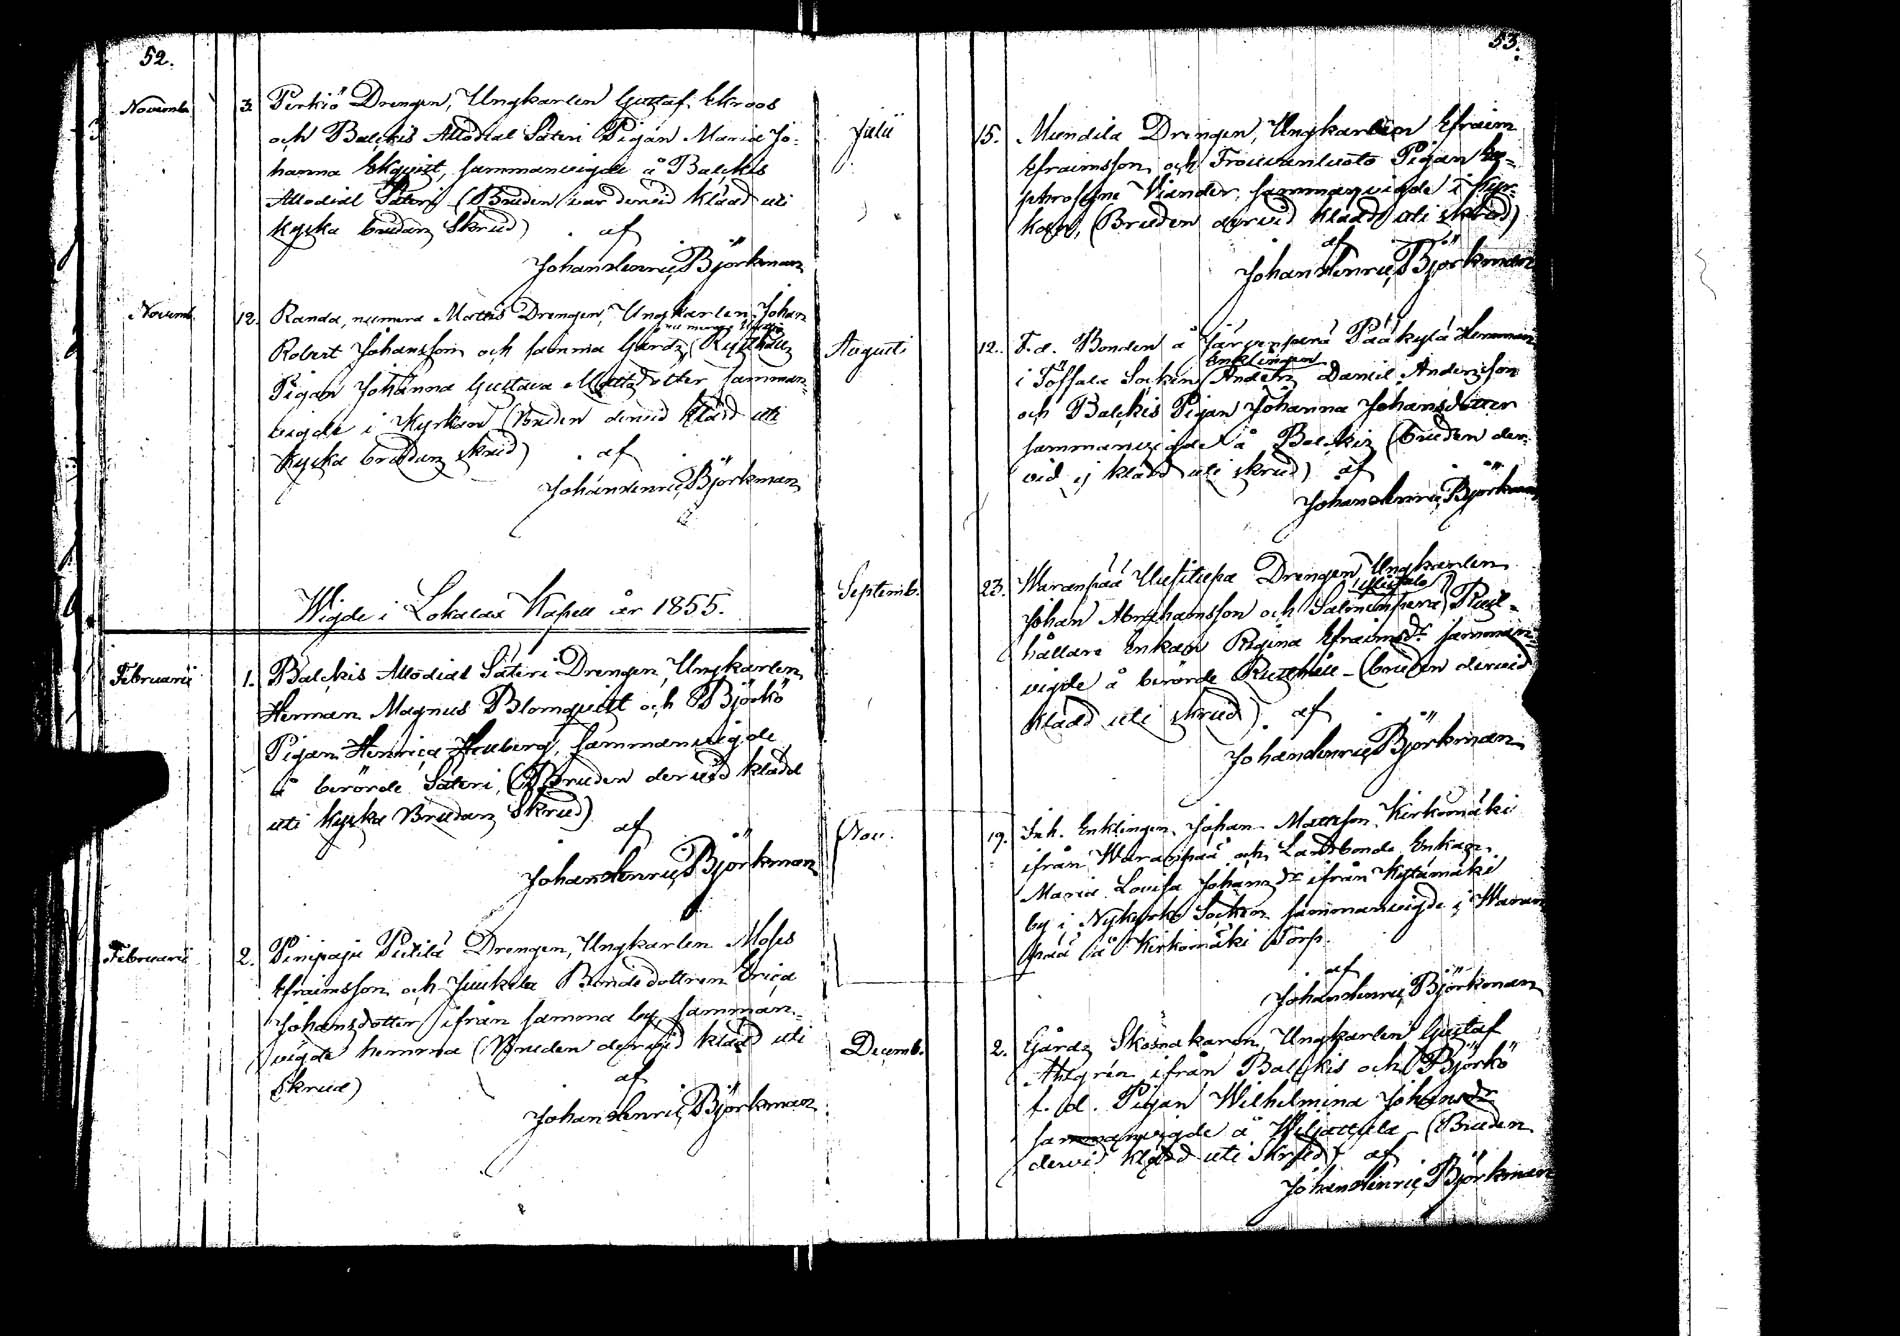 52.
Novemb. 3. Perkiö Drengen, Ungkarlen Gustaf Ekroos
och Balckis Allodial Säteri Pigan Maria Jo-
hanna Ekqvist, sammanvigde å Balckis
Allodial Säteri (Bruden var dervid klädd uti
kyska brudars Skrud) af
Johan Henric Björkman
Novemb. 12. Randa, numera Mattis Drengen, Ungkarlen Johan
Robert Johansson och samma Gårds Rusthålls
Pigan Johanna Gustava Mattsdotter samman-
vigde i Kyrkan (Bruden dervid klädd uti
kyska brudars skrud) af
Johan Henric Björkman
Wigde i Lokalax Kapell år 1855.
Februarii 1. Balckis Allodial Säteri Drengen, Ungkarlen
Herman Magnus Blomqvist och Björkö
Pigan Henrica Heuberg, sammanvigde
å berörde Säteri, (Bruden dervid klädd
uti kyska Brudars Skrud)
af
Johan Henric Björkman
Februarii 2. Pinipaju Pietilä Drengen, Ungkarlen Moses
Efraimsson och Juukela Bondedottren Erica
Johansdotter ifrån samma by, samman-
vigde hemma (Bruden dervid klädd uti
Skrud) af
Johan Henric Björkman
53.
Julii 15. Mundila Drengen, Ungkarlen Efraim
Efraimsson och Trouvanluoto Pigan Eu-
phrosyne Viander, sammanvigde i Kyr-
kan, (Bruden dervid klädd uti skrud)
af
Johan Henric Björkman
Augusti 12. F.d. Bonden å Järvenperä Pääkylä Hemman
Enklingen
i Töfsala Socken Anders Daniel Andersson
och Balckis Pigan Johanna Johansdotter
sammanvigde å Balckis (bruden der-
vid ej klädd uti skrud) af
Johan Henric Björkman
Septemb. 23. Waranpää Uusitupa Drengen Ungkarlen
Ylistalo
Johan Abrahamsson och Salmenperä Rust-
hållare Enkan Regina Efraimsdr samman-
vigde å berörde Rusthåll - (bruden dervid
klädd uti skrud) af
Johan Henric Björkman
Nov. 19. Inh. Enklingen Johan Mattsson Kirkomäki
ifrån Waranpää och Landbonde Enkan
Maria Lovisa Johansdr ifrån Kytämäki
by i Nykyrko Socken sammanvigde i Waran
pää å Kirkomäki Torp.
af
Johan Henric Björkman
Decemb. 2. Gårds Skomakaren, Ungkarlen Gustaf
Ahlgrén ifrån Balckis och Björkö
f. d. Pigan Wilhelmina Johansdr
sammanvigde å Wiljattula - (Bruden
dervid klädd uti Skrud) af
Johan Henric Björkman